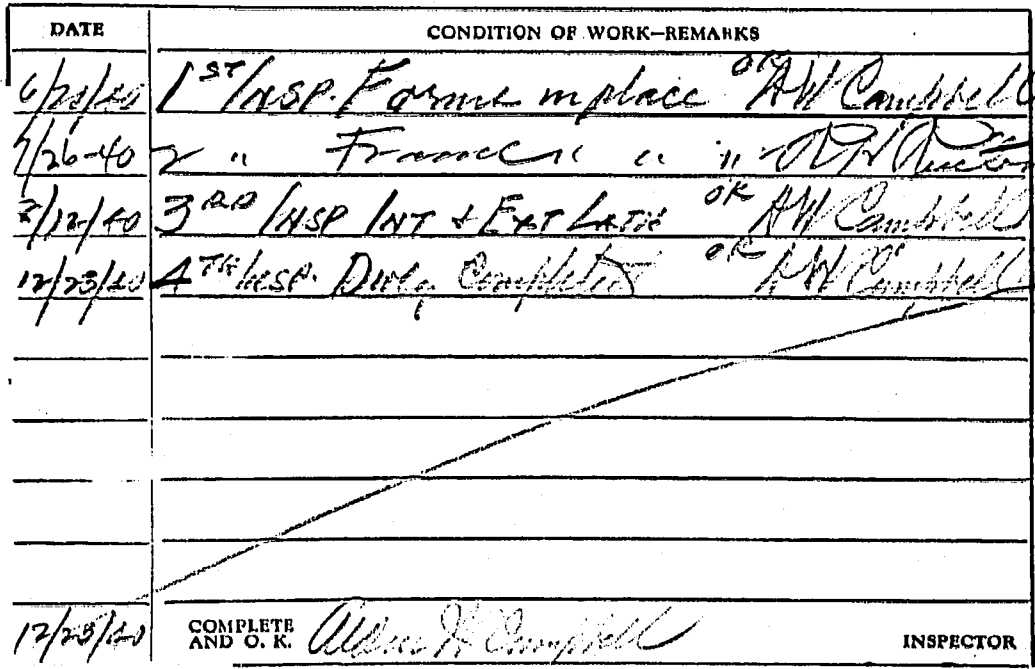 DATE CONDITION OF WORK—REMARKS
6/20/40 1ST INSP. Forms in place OK AW Campbell
7/26-40 2 " Frame " " "
3RD INSP INT & EXT LATH OK AW Campbell
12/23/40 4TH Insp. Dwlg. Completed OK AW Campbell
12/23/40 COMPLETE AND O. K. Campbell INSPECTOR